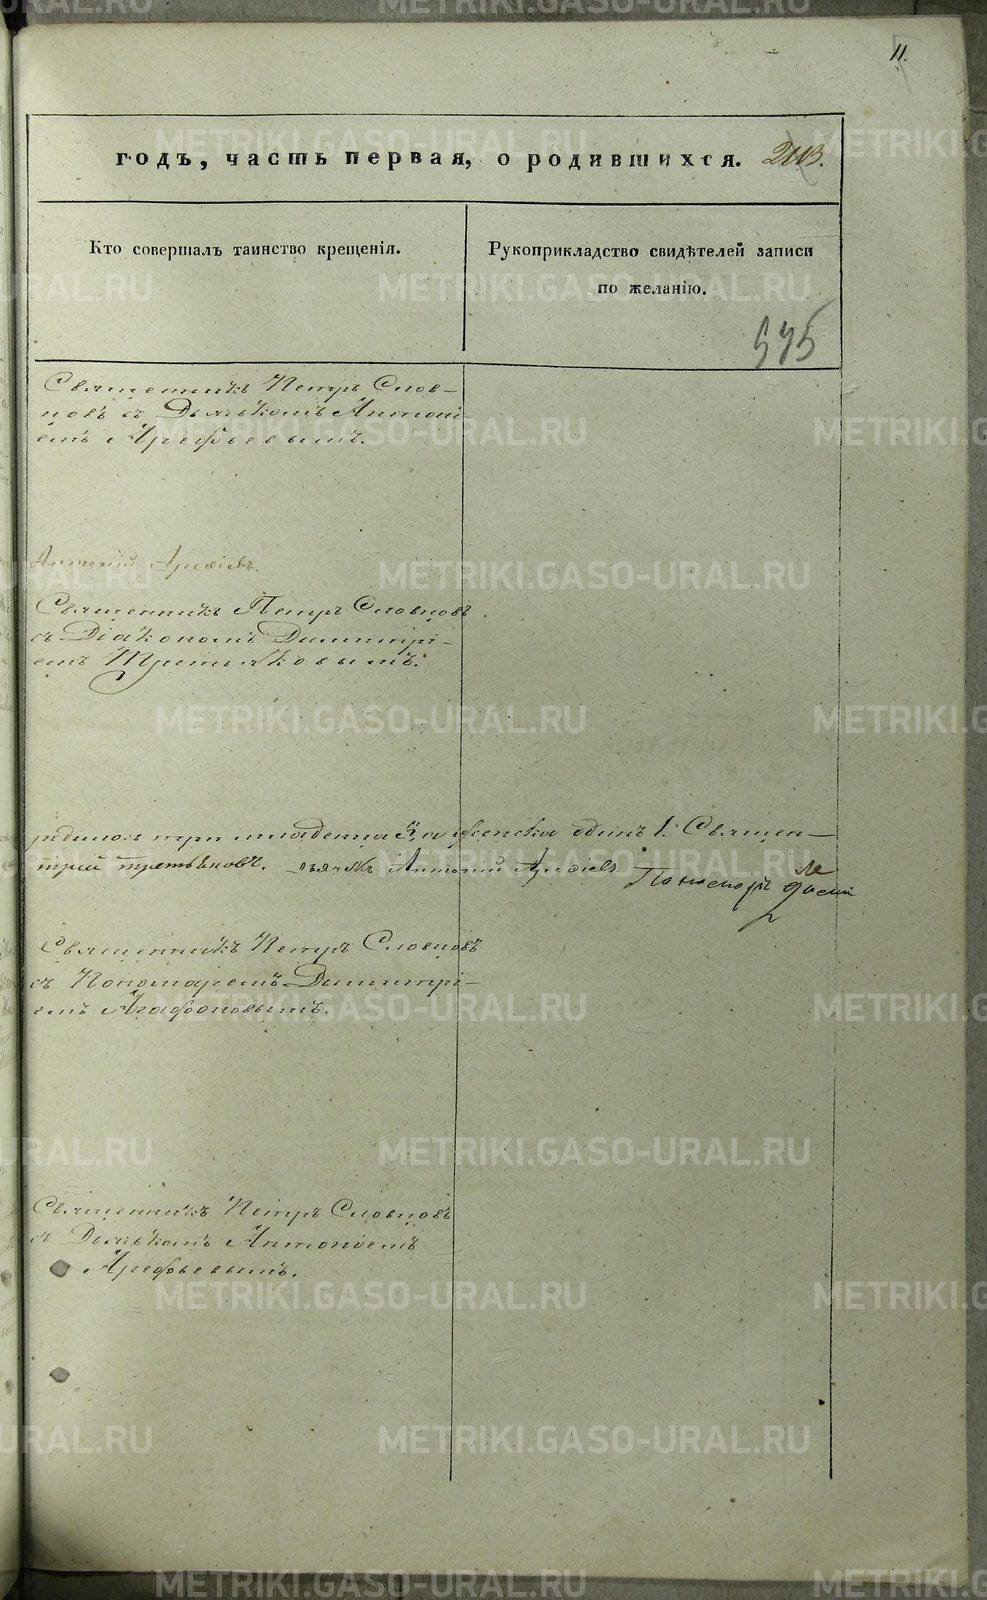 11.
годъ, часть первая, о родившихся.
Кто совершалъ таинство крещенія.
Рукоприкладство свидѣтелей записи
по желанію.
Священникъ Петръ Слов-
цовъ съ Дьячькомъ Антоні-
емъ Арефьевымъ.
Антоній Арефіевъ.
Священникъ Петръ Словцовъ
съ Діакономъ Димитрі-
емъ Третьяковымъ.
родилось три младенца 3, а женска одинъ 1. Священ-
трій Третьяковъ. дьячекъ Антоній Арефіевъ Пономарь
Священникъ Петръ Словцовъ
съ Пономаремъ Димитрі-
емъ Агафоновымъ.
Священникъ Петръ Словцовъ
съ Дьячькомъ Антоніемъ
Арефьевымъ.
METRIKI.GASO-URAL.RU